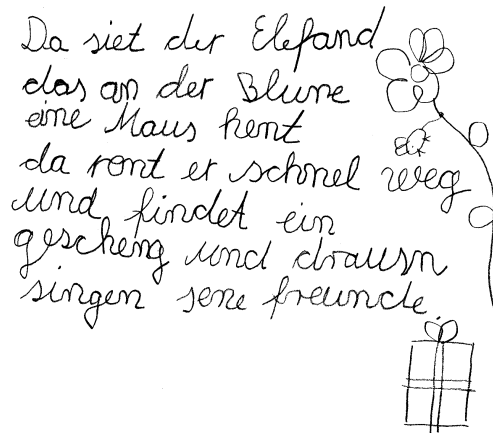 Da siet der Elefand
das an der Blume
eine Maus hent
da ront er schnel weg
und findet ein
gescheng und drausn
singen sene freunde.